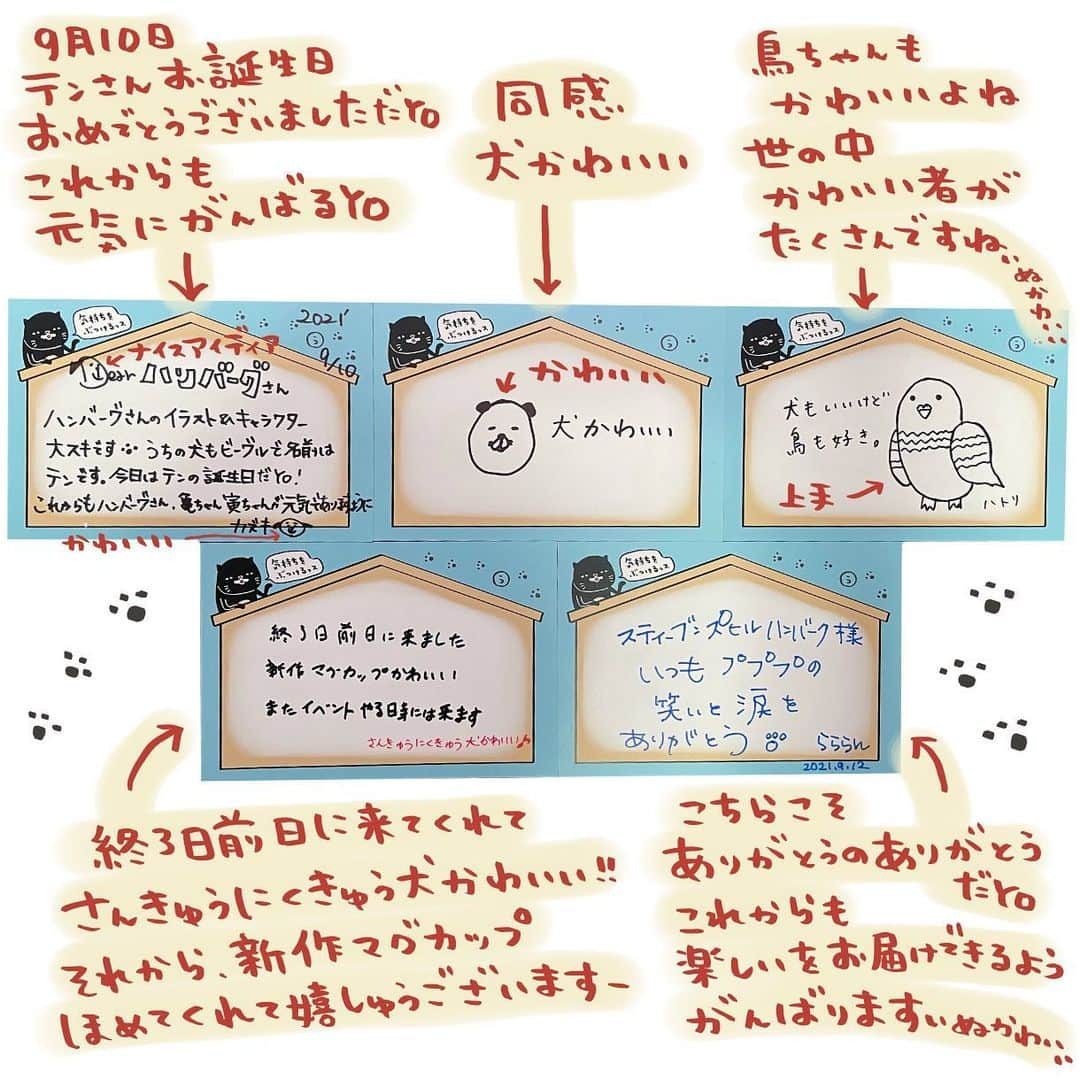 9月10日
テンさんお誕生日
おめでとうございましただYO
これからも
元気にがんばるYO
同感
犬かわいい
鳥ちゃんも
かわいいよね
世の中
かわいい者が
たくさんですね、、ぬかわ、、
気持ちを
ぶつけるっス
2021'
9/10
ナイスアイディア
Dear ハンバーグさん
ハンバーグさんのイラスト&キャラクター
大スキです うちの犬もビーグルで名前は
テンです。今日はテンの誕生日だYO!
これからもハンバーグさん、亀ちゃん寅ちゃんが元気であり
カズキ
かわいい
気持ちを
ぶつけるっス
う
かわいい
犬かわいい
気持ちを
ぶつけるっス
う
犬もいいけど
鳥も好き。
上手
ハトリ
気持ちを
ぶつけるっス
う
終了日前日に来ました
新作マグカップかわいい
またイベントやる時には来ます
さんきゅうにくきゅう犬かわいい
気持ちを
ぶつけるっス
う
スティーブンズヒルハンバーグ様
いつもプププの
笑いと涙を
ありがとう
らららん
2021.9.12
終了日前日に来てくれて
さんきゅうにくきゅう犬かわいい!!
それから、新作マグカップ
ほめてくれて嬉しゅうございますー
こちらこそ
ありがとうのありがとう
だYO
これからも
楽しいをお届けできるよう
がんばりますぃぬかわい、、